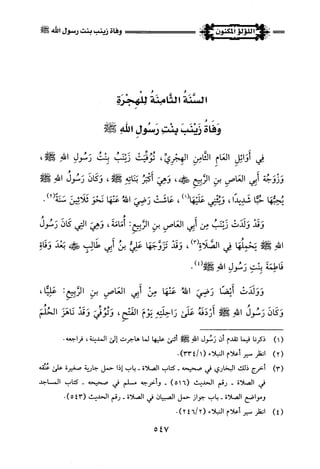 اللؤلؤ المكنون
وفاة زينب بنت رسول الله ﷺ
السَّنَةُ الثَّامِنَةُ لِلْهِجْرَةِ
وَفَاةُ زَيْنَبَ بِنْتِ رَسُولِ اللهِ ﷺ
فِي أَوَائِلِ العَامِ الثَّامِنِ الهِجْرِيِّ، تُوُفِّيَتْ زَيْنَبُ بِنْتُ رَسُولِ اللهِ ﷺ،
وَزَوْجَةُ أَبِي العَاصِ بنِ الرَّبِيعِ ﷺ، وَهِيَ أَكْبَرُ بَنَاتِهِ ﷺ، وَكَانَ رَسُولُ اللهِ ﷺ
يُحِبُّهَا حُبًّا شَدِيدًا، وَيُثْنِي عَلَيْهَا(١)، عَاشَتْ رَضِيَ اللهُ عَنْهَا نَحْوَ ثَلَاثِينَ سَنَةً(٢).
وَقَدْ وَلَدَتْ زَيْنَبُ مِنْ أَبِي العَاصِ بنِ الرَّبِيعِ: أُمَامَةَ، وَهِيَ التِي كَانَ رَسُولُ
اللهِ ﷺ يَحْمِلُهَا فِي الصَّلَاةِ(٣)، وَقَدْ تَزَوَّجَهَا عَلِيُّ بنُ أَبِي طَالِبٍ ﷺ بَعْدَ وَفَاةِ
فَاطِمَةَ بِنْتِ رَسُولِ اللهِ ﷺ(٤).
وَوَلَدَتْ أَيْضًا رَضِيَ اللهُ عَنْهَا مِنْ أَبِي العَاصِ بنِ الرَّبِيعِ: عَلِيًّا،
وَكَانَ رَسُولُ اللهِ ﷺ أَرْدَفَهُ عَلَى رَاحِلَتِهِ يَوْمَ الفَتْحِ، وَتُوُفِّيَ وَقَدْ نَاهَزَ الحُلُمَ
(١) ذكرنا فيما تقدم أن رسول الله ﷺ أثنى عليها لما هاجرت إلى المدينة، فراجعه.
(٢) انظر سير أعلام النبلاء (٣٣٤/١).
(٣) أخرج ذلك البخاري في صحيحه ـ كتاب الصلاة ـ باب إذا حمل جارية صغيرة على عُنُقه
في الصلاة ـ رقم الحديث (٥١٦) ـ وأخرجه مسلم في صحيحه ـ كتاب المساجد
ومواضع الصلاة ـ باب جواز حمل الصبيان في الصلاة ـ رقم الحديث (٥٤٣).
(٤) انظر سير أعلام النبلاء (٢٤٦/٢).
٥٤٧